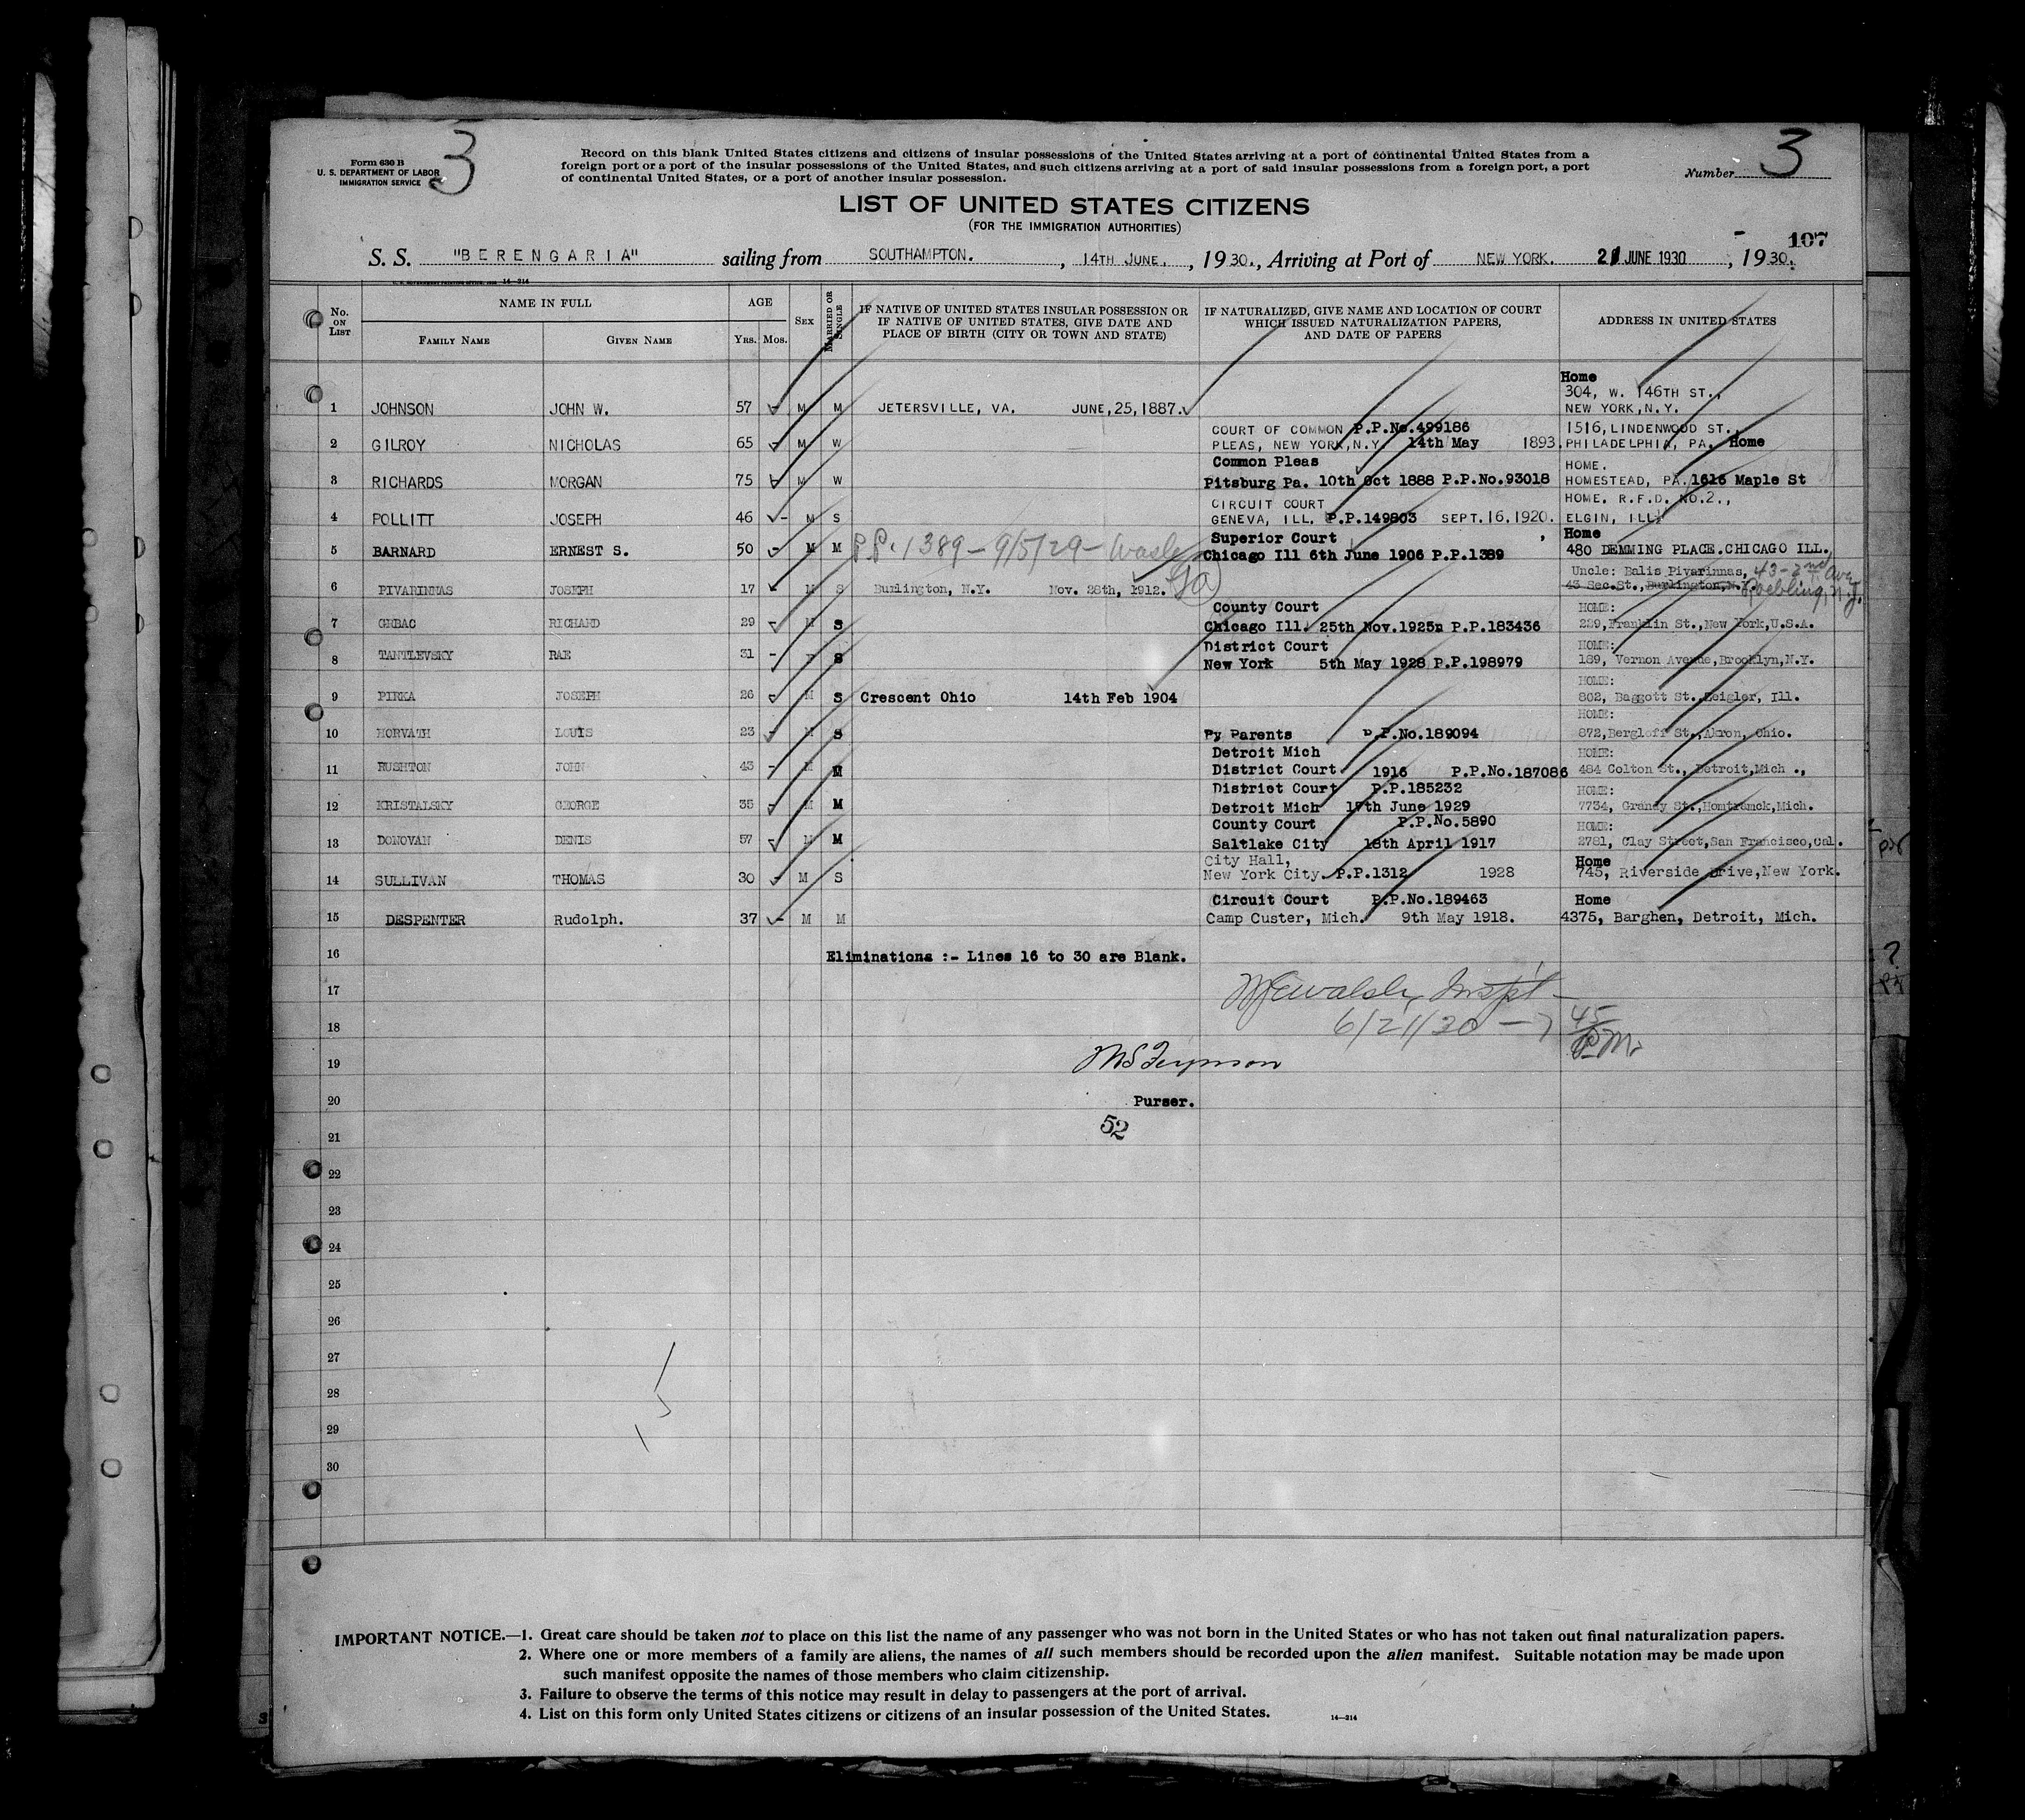 Form 630 B
U. S. DEPARTMENT OF LABOR
IMMIGRATION SERVICE
3
Record on this blank United States citizens and citizens of insular possessions of the United States arriving at a port of continental United States from a
foreign port or a port of the insular possessions of the United States, and such citizens arriving at a port of said insular possessions from a foreign port, a port
of continental United States, or a port of another insular possession.
Number 3
LIST OF UNITED STATES CITIZENS
(FOR THE IMMIGRATION AUTHORITIES)
107
S. S. "BERENGARIA" sailing from SOUTHAMPTON. , 14TH JUNE. , 1930., Arriving at Port of NEW YORK. 21 JUNE 1930 , 1930.
14-214
No. ON LIST
NAME IN FULL
FAMILY NAME GIVEN NAME
AGE
YRS. MOS.
SEX
MARRIED OR SINGLE
IF NATIVE OF UNITED STATES INSULAR POSSESSION OR
IF NATIVE OF UNITED STATES, GIVE DATE AND
PLACE OF BIRTH (CITY OR TOWN AND STATE)
IF NATURALIZED, GIVE NAME AND LOCATION OF COURT
WHICH ISSUED NATURALIZATION PAPERS,
AND DATE OF PAPERS
ADDRESS IN UNITED STATES
Home
304, W. 146TH ST.,
1 JOHNSON JOHN W. 57 - M M JETERSVILLE, VA. JUNE,25,1887. NEW YORK,N.Y.
COURT OF COMMON P.P.No.499186 1516,LINDENWOOD ST.,
2 GILROY NICHOLAS 65 - M W PLEAS, NEW YORK,N.Y. 14th May 1893. PHILADELPHIA, PA. Home
Common Pleas HOME.
3 RICHARDS MORGAN 75 - M W Pitsburg Pa. 10th Oct 1888 P.P.No.93018 HOMESTEAD, PA.1616 Maple St
CIRCUIT COURT HOME. R.F.D. NO.2.,
4 POLLITT JOSEPH 46 - M S GENEVA, ILL. P.P.149803 SEPT.16.1920. ELGIN, ILL.
Superior Court Home
5 BARNARD ERNEST S. 50 - M M P.P. 1389 - 9/5/29 - Wash Chicago Ill 6th June 1906 P.P.1389 480 DEMMING PLACE.CHICAGO ILL.,
Uncle: Balis Pivarinnas, 43-2nd Ave
6 PIVARINNAS JOSEPH 17 M S Burlington, N.Y. Nov. 28th, 1912. 43 Sec.St., Burlington,N.Y. Roebling, N.J.
County Court HOME:
7 GRBAC RICHARD 29 - M S Chicago Ill. 25th Nov.1925n P.P.183436 229,Franklin St.,New York,U.S.A.
District Court HOME:
8 TANTLEVSKY RAE 31 - F S New York 5th May 1928 P.P.198979 189, Vernon Avenue,Brooklyn,N.Y.
HOME:
9 PIRKA JOSEPH 26 - M S Crescent Ohio 14th Feb 1904 802, Baggott St.,Zeigler, Ill.
HOME:
10 HORVATH LOUIS 23 - M S By Parents P.P.No.189094 872,Bergloff St.,Akron, Ohio.
Detroit Mich HOME:
11 RUSHTON JOHN 43 - M M District Court 1916 P.P.No.187086 484 Colton St., Detroit,Mich .,
District Court P.P.185232 HOME:
12 KRISTALSKY GEORGE 35 - M M Detroit Mich 17th June 1929 7734, Grandy St.,Homtramck,Mich.
County Court P.P.No.5890 HOME:
13 DONOVAN DENIS 57 - M M Saltlake City 18th April 1917 2781, Clay Street,San Francisco,Cal.
City Hall, Home
14 SULLIVAN THOMAS 30 - M S New York City. P.P.1312 1928 745, Riverside Drive,New York.
Circuit Court P.P.No.189463 Home
15 DESPENTER Rudolph. 37 - M M Camp Custer, Mich. 9th May 1918. 4375, Barghen, Detroit, Mich.
16 Eliminations :- Lines 16 to 30 are Blank.
17
18 6/21/30 - 7 45 P.M.
19
20 Purser.
52
21
22
23
24
25
26
27
28
29
30
IMPORTANT NOTICE.—1. Great care should be taken not to place on this list the name of any passenger who was not born in the United States or who has not taken out final naturalization papers.
2. Where one or more members of a family are aliens, the names of all such members should be recorded upon the alien manifest. Suitable notation may be made upon
such manifest opposite the names of those members who claim citizenship.
3. Failure to observe the terms of this notice may result in delay to passengers at the port of arrival.
4. List on this form only United States citizens or citizens of an insular possession of the United States.
14—214